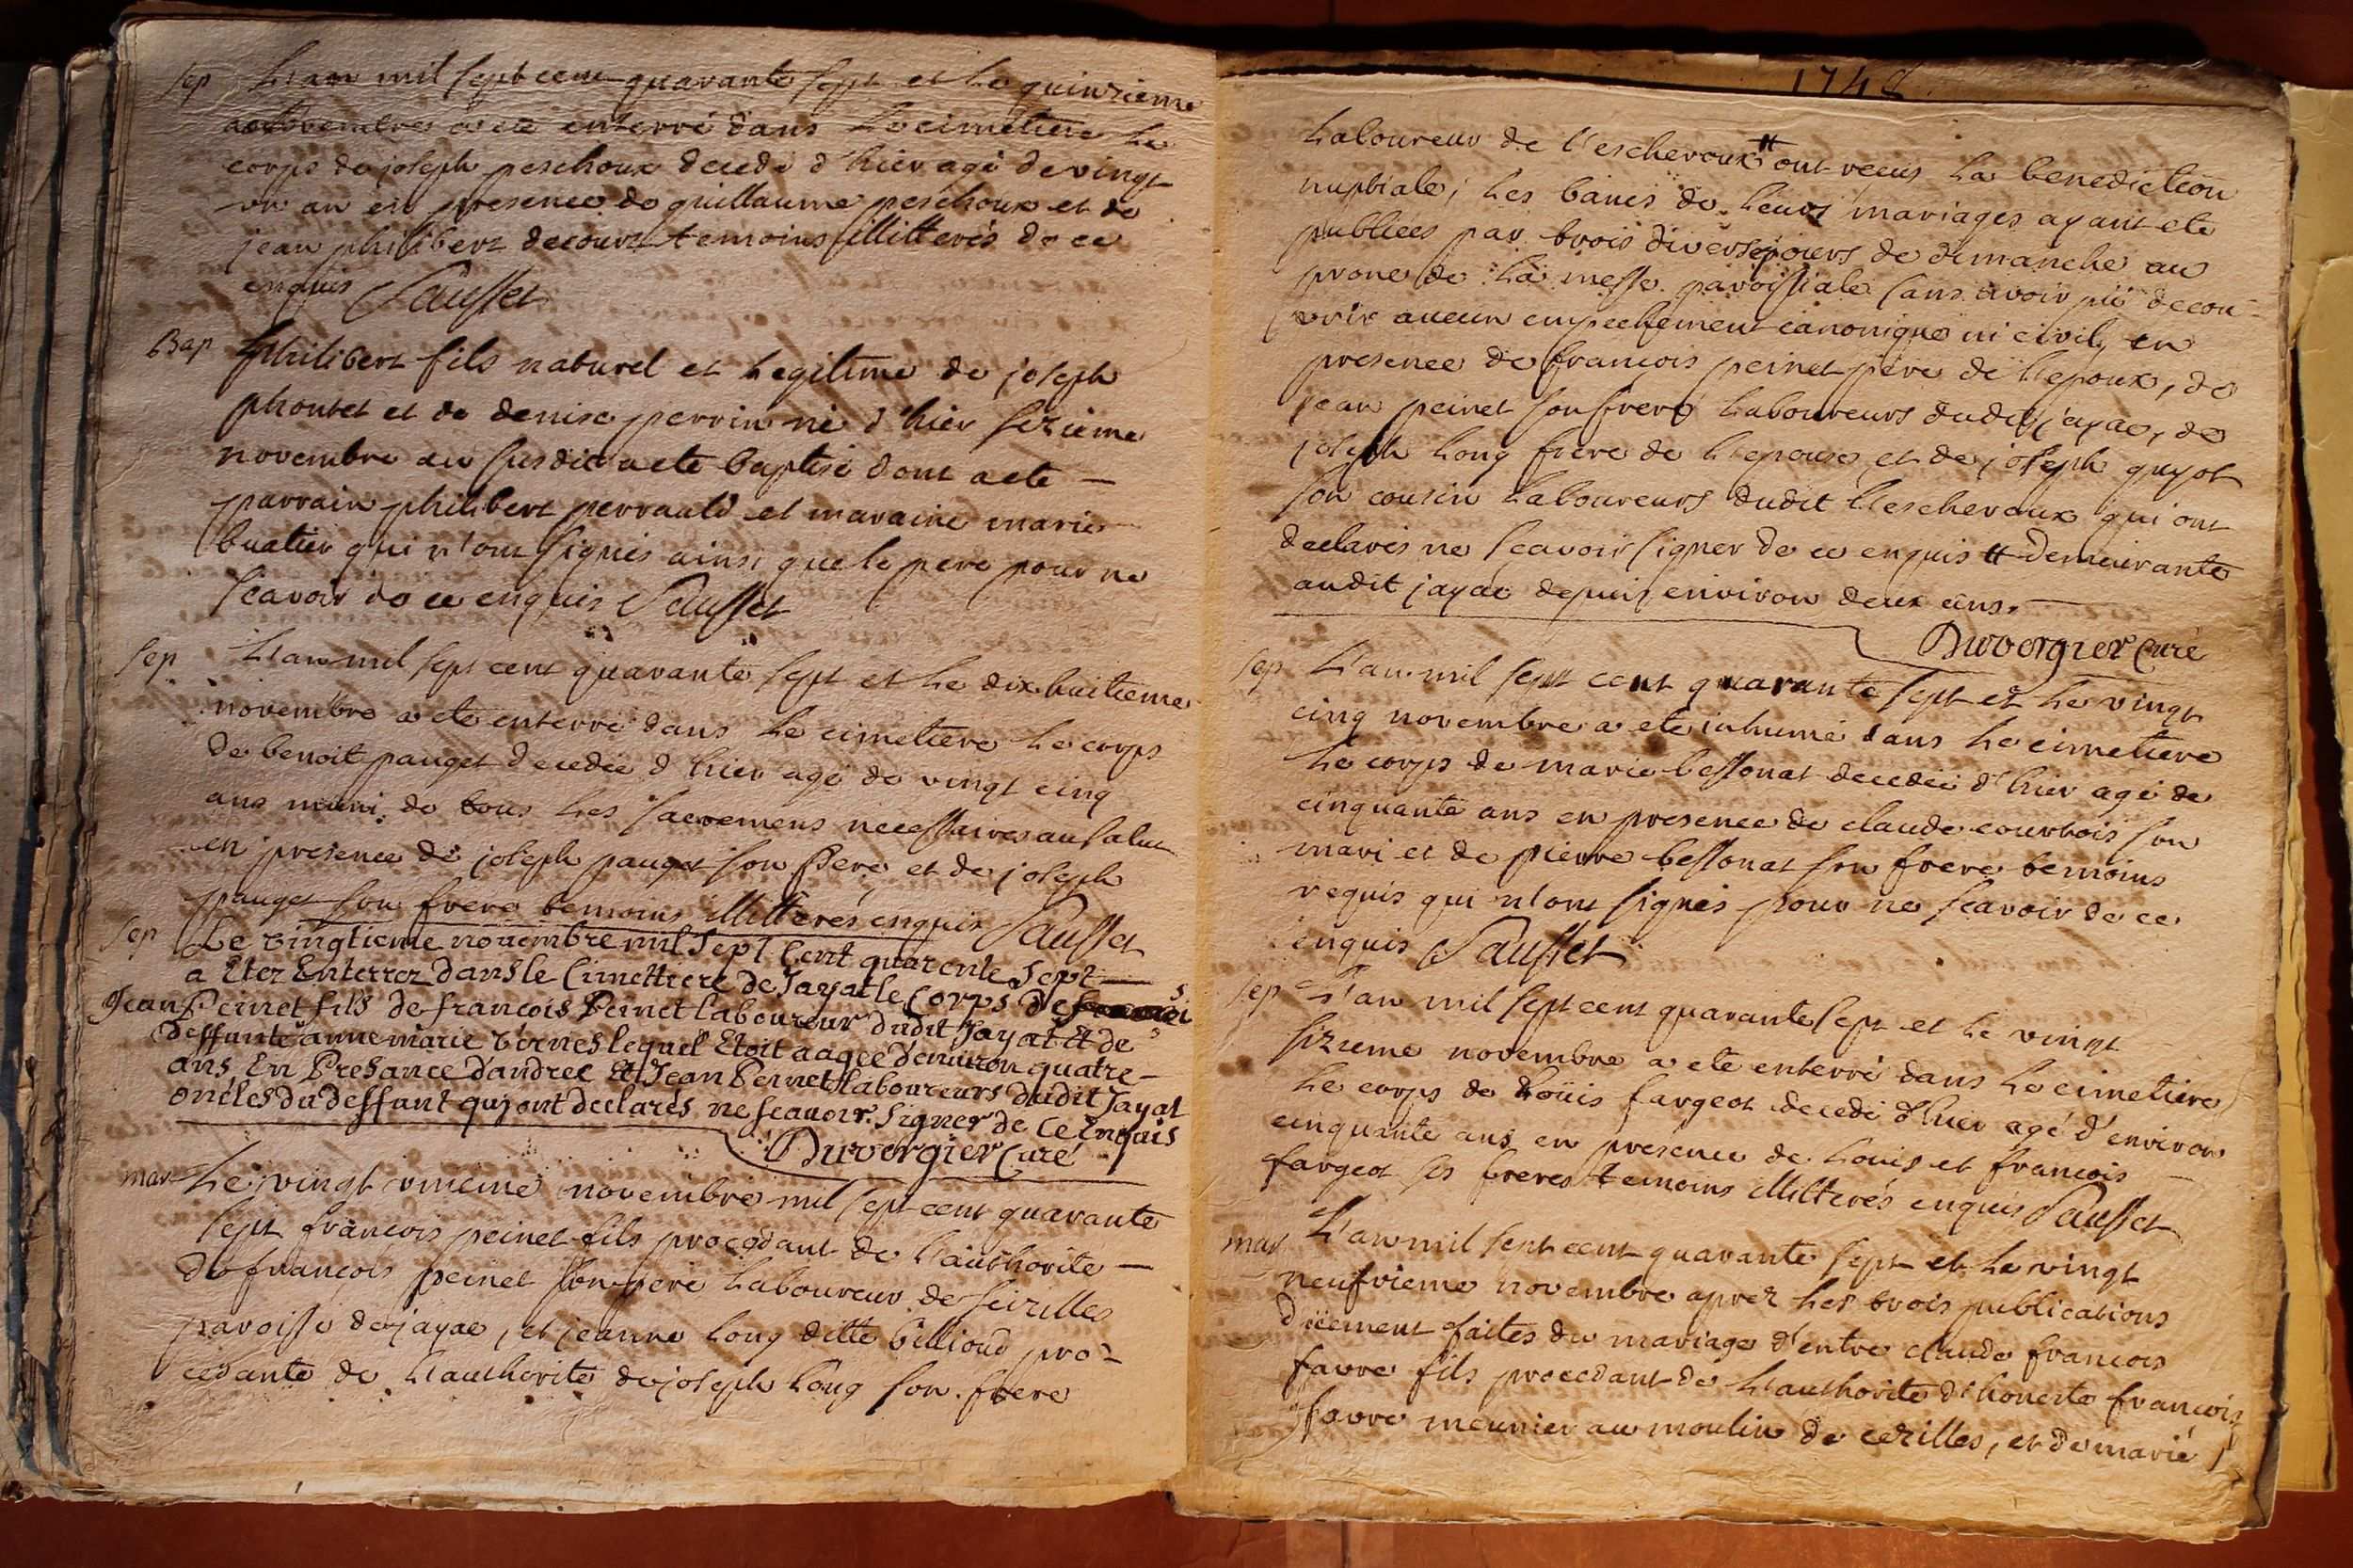 sep L'an mil sept cent quarante sept et le quinzieme
novembre a eté enterré dans le cimetiere le
corps de joseph peschoux decedé d'hier agé de vingt
un an en presence de guillaume peschoux et de
jean philibert decourt temoins illitterés de ce
enquis Sausset
Bap philibert fils naturel et legitime de joseph
phoutet et de denise perrin né d'hier sizieme
novembre au susdit a eté baptisé dont acte —
parrain philibert perrauld et maraine marie
buatier qui n'ont signés ainsi que le pere pour ne
scavoir de ce enquis Sausset
sep L'an mil sept cent quarante sept et le dix huitieme
novembre a eté enterré dans le cimetiere le corps
de benoit pauget decedée d'hier agé de vingt cinq
ans muni de tous les sacremens necessaires au salut
en presence de joseph pauget son pere et de joseph
pauget son frere temoins illitterés enquis Sausset
sep Le vingtieme nouembre mil sept cent quarente sept —
a Etez Enterrez dans le Cimettiere de Jayat le Corps de
Jean Pernet fils de francois Pernet laboureur dudit Jayat Et de
deffunte anne marie Vernes lequel Etoit aagée d'enuiron quatre –
ans En Presance d'andree Et Jean Pernet laboureurs dudit Jayat
oncles du deffunt qui ont declarés ne scauoir signer de Ce Enquis
Duvergier Curé
mar Le vingt unieme novembre mil sept cent quarante
sept francois peinet fils procedant de l'authorité —
de françois peinet son pere laboureur de seizilles
paroisse de jayac, et jeanne long ditte billioud pro-
cedante de l'authorité de joseph long son frere
1748
laboureur de l'escheroux # ont recus la benediction
nuptiale, les bancs de leurs mariages ayant eté
publiées par trois diverses jours de dimanche au
prone de la messe paroissiale sans avoir pû decou-
vrir aucun empechement canonique ni civil, en
presence de françois peinet pere de l'epoux, de
jean peinet son frere laboureurs dudit jayac, de
joseph long frere de l'epouse et de joseph guyot
son cousin laboureurs dudit l'escheroux qui ont
declarés ne scavoir signer de ce enquis # demeurante
audit jayac depuis environ deux ans.
Duvergier Curé
sep L'an mil sept cent quarante sept et le vingt
cinq novembre a eté inhumé dans le cimetiere
le corps de marie bessonat decedée d'hier agé de
cinquante ans en presence de claude courtois son
mari et de pierre bessonat son frere temoins
requis qui n'ont signés pour ne scavoir de ce
enquis Sausset
sep L'an mil sept cent quarante sept et le vingt
sizieme novembre a eté enterré dans le cimetiere
le corps de Loüis fargeot decedé d'hier agé d'environ
cinquante ans en presence de Louis et françois —
fargeot ses freres temoins illitterés enquis Sausset
mar L'an mil sept cent quarante sept et le vingt
neufvieme novembre aprez les trois publications
düement faites du mariage d'entre claude francois
favre fils procedant de l'authorité d'honeste francois
favre meunier au moulin de cezilles, et de marie